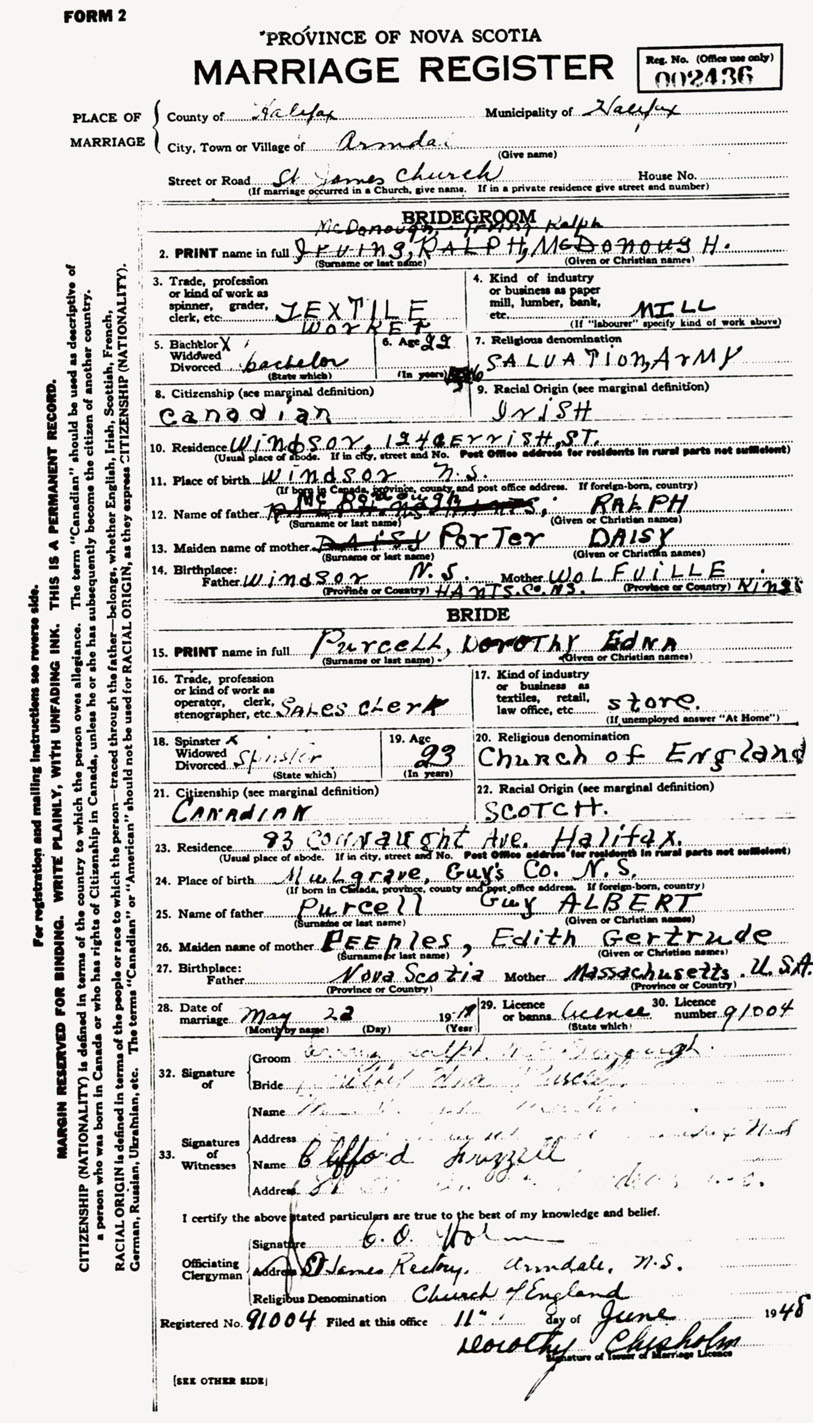 FORM 2
PROVINCE OF NOVA SCOTIA
MARRIAGE REGISTER
Reg. No. (Office use only)
002436
PLACE OF MARRIAGE
County of Halifax Municipality of Halifax
City, Town or Village of Armdale
(Give name)
Street or Road St James Church House No.
(If marriage occurred in a Church, give name. If in a private residence give street and number)
BRIDEGROOM
McDonough, Irving Ralph
2. PRINT name in full Irving, RALPH, McDonough H.
(Surname or last name) (Given or Christian names)
3. Trade, profession or kind of work as spinner, grader, clerk, etc. TEXTILE WORKER
4. Kind of industry or business as paper mill, lumber, bank, etc. MILL
(If "labourer" specify kind of work above)
5. Bachelor X Widowed Divorced bachelor
(State which)
6. Age 22
(In years)
7. Religious denomination
SALVATION ARMY
8. Citizenship (see marginal definition)
Canadian
9. Racial Origin (see marginal definition)
IRISH
10. Residence WINDSOR, 124 GERRISH, ST.
(Usual place of abode. If in city, street and No. Post Office address for residents in rural parts not sufficient)
11. Place of birth WINDSOR N.S.
(If born in Canada, province, county, and post office address. If foreign-born, country)
12. Name of father McDonough RALPH
(Surname or last name) (Given or Christian names)
13. Maiden name of mother DAISY PORTER DAISY
(Surname or last name) (Given or Christian names)
14. Birthplace: Father WINDSOR N.S. Mother WOLFVILLE
(Province or Country) HANTS. CO. NS. (Province or Country) KINGS
BRIDE
15. PRINT name in full Purcell, DOROTHY EDNA
(Surname or last name) (Given or Christian names)
16. Trade, profession or kind of work as operator, clerk, stenographer, etc. SALES CLERK
17. Kind of industry or business as textiles, retail, law office, etc store.
(If unemployed answer "At Home")
18. Spinster x Widowed Divorced Spinster
(State which)
19. Age
23
(In years)
20. Religious denomination
Church of England
21. Citizenship (see marginal definition)
CANADIAN
22. Racial Origin (see marginal definition)
SCOTCH.
23. Residence 93 Connaught Ave. Halifax.
(Usual place of abode. If in city, street and No. Post Office address for residents in rural parts not sufficient)
24. Place of birth Mulgrave, Guy's Co. N.S.
(If born in Canada, province, county and post office address. If foreign-born, country)
25. Name of father Purcell Guy ALBERT
(Surname or last name) (Given or Christian names)
26. Maiden name of mother PEEPLES, Edith Gertrude
(Surname or last name) (Given or Christian names)
27. Birthplace: Father Nova Scotia Mother Massachusetts. U.S.A.
(Province or Country) (Province or Country)
28. Date of marriage May 22 19
(Month by name) (Day) (Year)
29. Licence or banns Licence
(State which)
30. Licence number 91004
32. Signature of
Groom Irving Ralph McDonough.
Bride Edna Purcell
33. Signatures of Witnesses
Name
Address
Name Clifford Frizzell
Address
I certify the above stated particulars are true to the best of my knowledge and belief.
Officiating Clergyman
Signature
Address St James Rectory, Armdale, N.S.
Religious Denomination Church of England
Registered No. 91004 Filed at this office 11" day of June 1948
Dorothy Chisholm
Signature of Issuer of Marriage Licence
[SEE OTHER SIDE]
For registration and mailing instructions see reverse side.
MARGIN RESERVED FOR BINDING. WRITE PLAINLY, WITH UNFADING INK. THIS IS A PERMANENT RECORD.
CITIZENSHIP (NATIONALITY) is defined in terms of the country to which the person owes allegiance. The term "Canadian" should be used as descriptive of
a person who was born in Canada or who has rights of Citizenship in Canada, unless he or she has subsequently become the citizen of another country.
RACIAL ORIGIN is defined in terms of the people or race to which the person—traced through the father—belongs, whether English, Irish, Scottish, French,
German, Russian, Ukrainian, etc. The terms "Canadian" or "American" should not be used for RACIAL ORIGIN, as they express CITIZENSHIP (NATIONALITY).